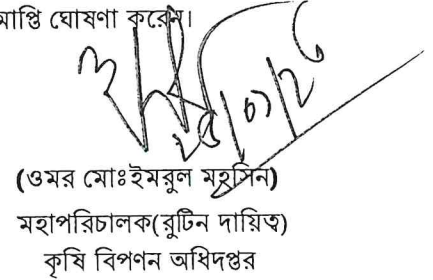 মাপ্তি ঘোষণা করেন।
(ওমর মোঃইমরুল মহসিন)
মহাপরিচালক(রুটিন দায়িত্ব)
কৃষি বিপণন অধিদপ্তর